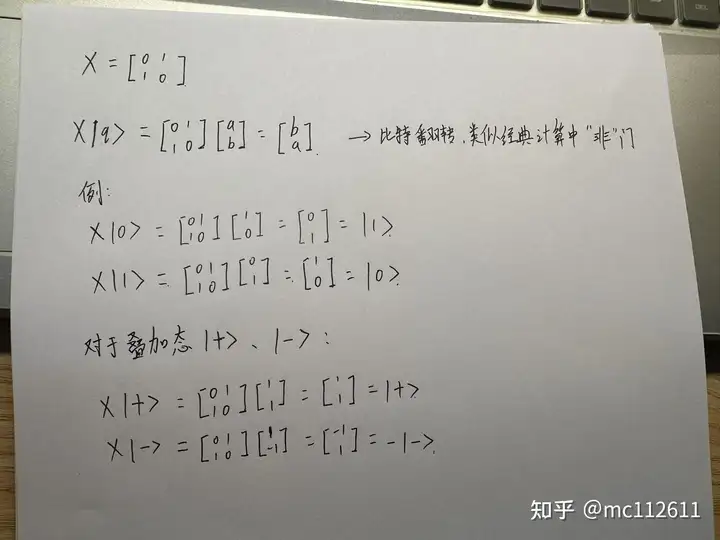 X = [0 1 1 0]
X|q> = [0 1 1 0][a b] = [b a]. → 比特翻转，类似经典计算中“非”门
例:
X|0> = [0 1 1 0][1 0] = [0 1] = |1>
X|1> = [0 1 1 0][0 1] = [1 0] = |0>
对于叠加态 |+>、|->:
X|+> = [0 1 1 0][1 1] = [1 1] = |+>
X|-> = [0 1 1 0][1 -1] = [-1 1] = -|->.
知乎 @mc112611